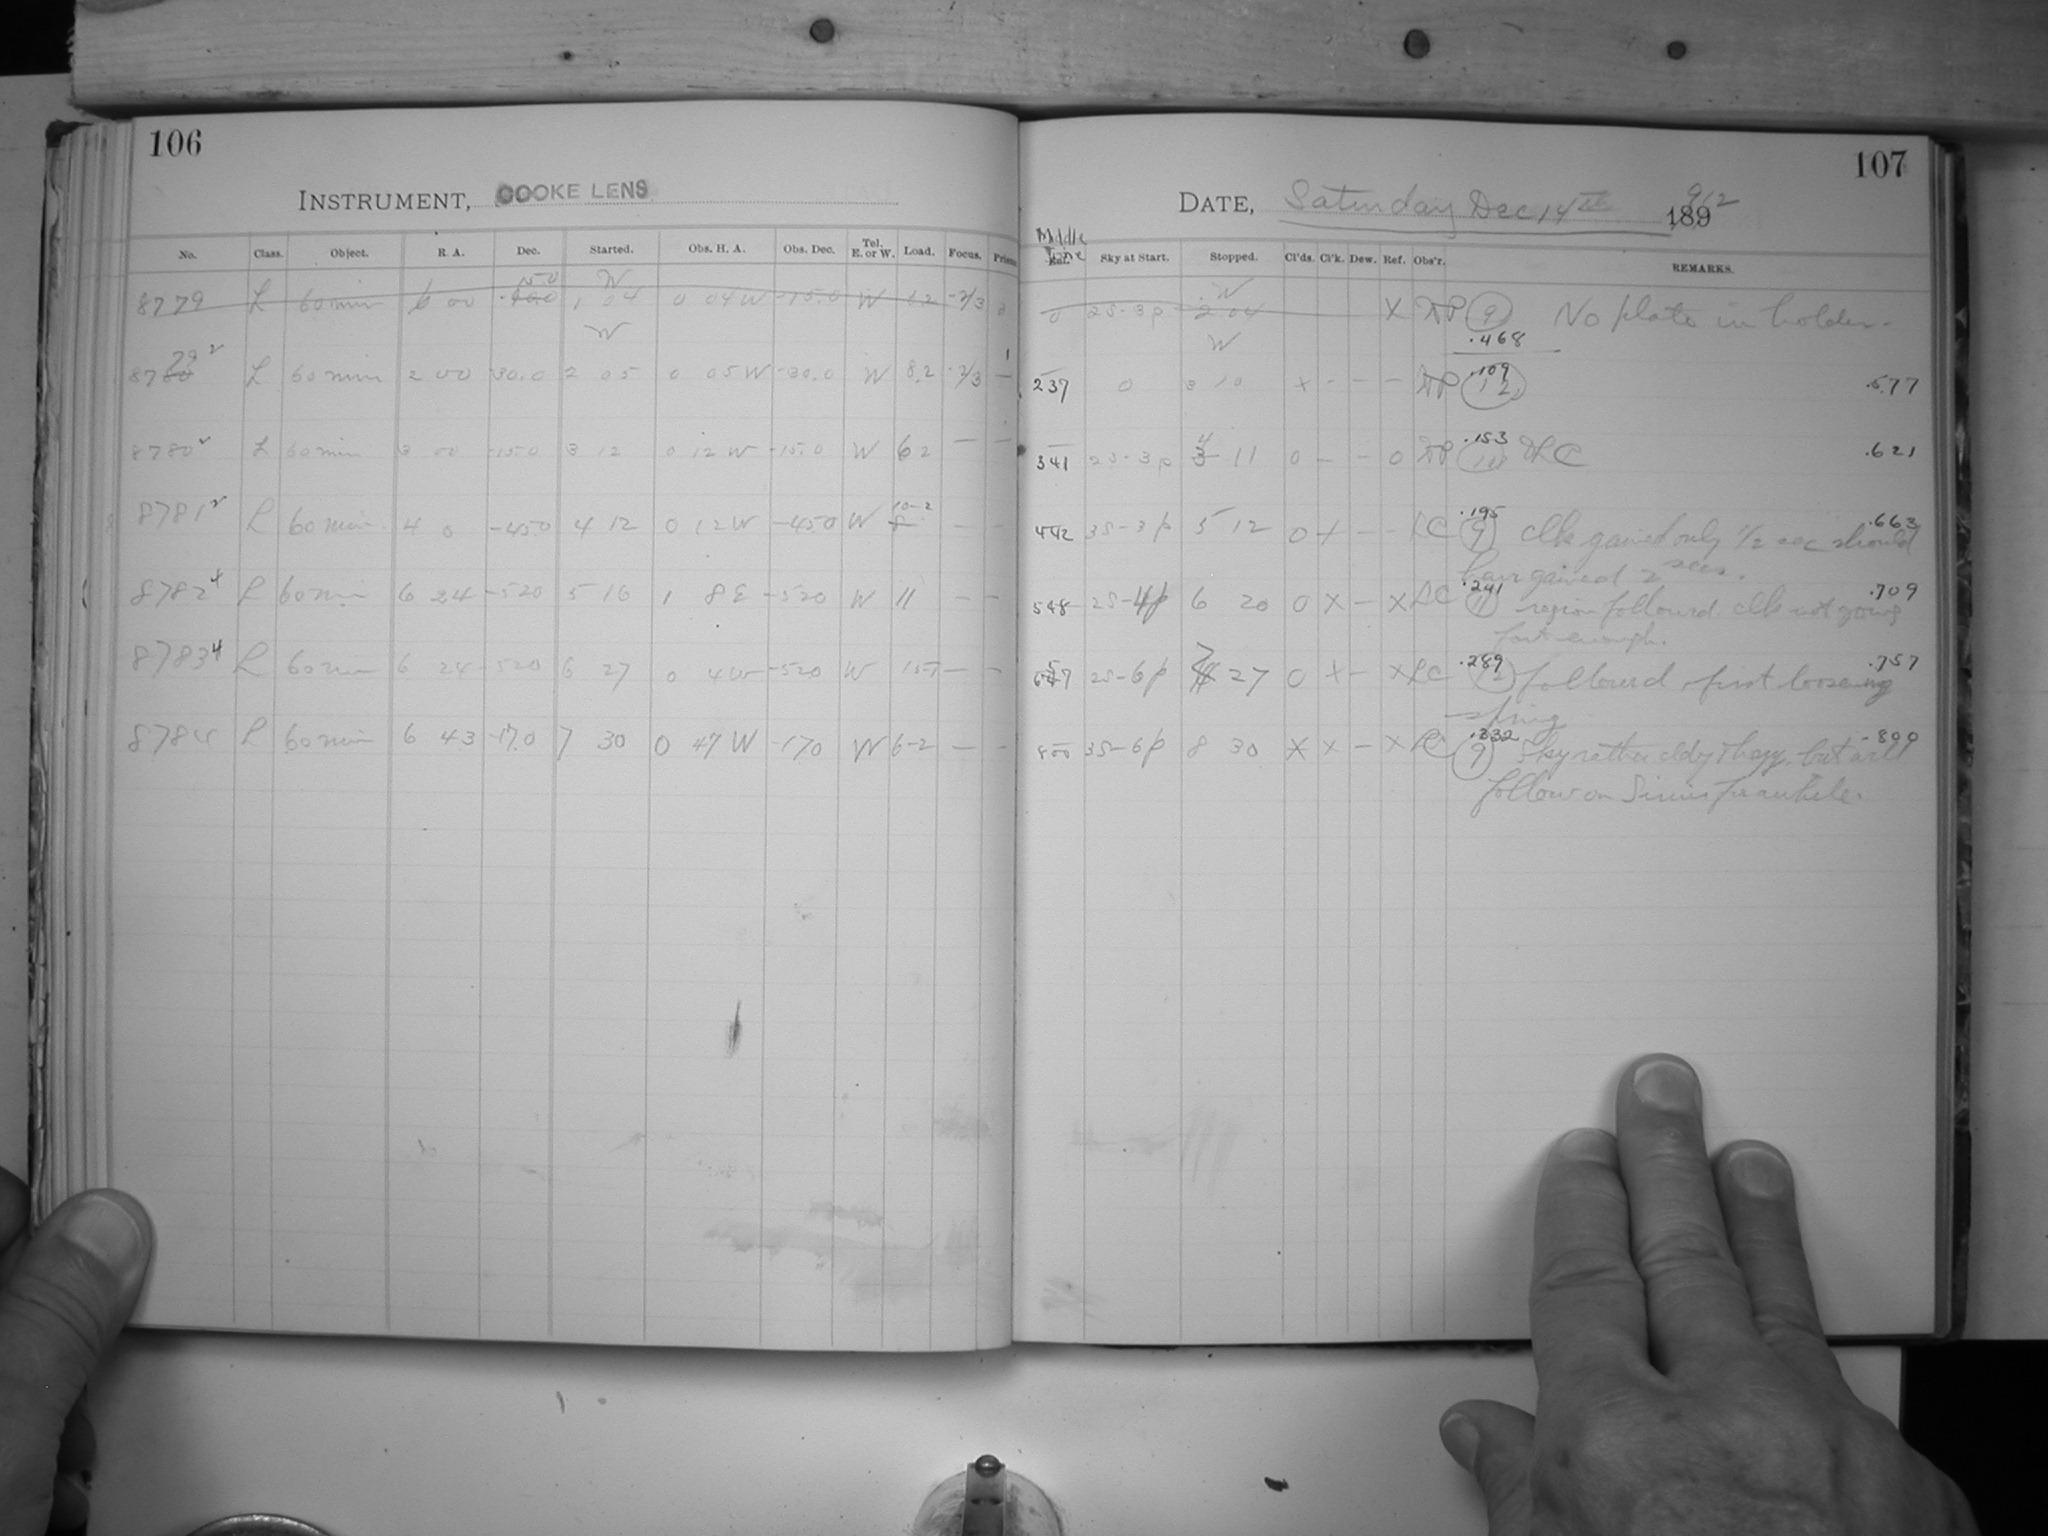 106
INSTRUMENT, COOKE LENS
No. Class. Object. R. A. Dec. Started. Obs. H. A. Obs. Dec. Tel. E. or W. Load. Focus. Prism
8779 L 60 min 6 00 15.0 W 1 04 0 04 W -15.0 W 6.2 -2/3
79 2
8780 L 60 min 2 00 -30.0 W 2 05 0 05 W -30.0 W 8.2 -2/3 —
8780 L 60 min 3 00 -15.0 3 12 0 12 W -15.0 W 6 2 — —
8781 2 L 60 min 4 0 -45.0 4 12 0 12 W -45.0 W 10-2 8 — —
8782 4 L 60 min 6 24 -520 5 16 1 8 E -520 W 11 — —
8783 4 L 60 min 6 24 -520 6 27 0 4 W -520 W 15-7 — —
8784 L 60 min 6 43 -17.0 7 30 0 47 W -170 W 6-2 — —
107
DATE, Saturday Dec 14th 189 912
Middle Time
Sky at Start. Stopped. Cl'ds. Cl'k. Dew. Ref. Obs'r. REMARKS.
0 2S-3p W 2 04 X 9 No plate in holder.
.468
237 0 W 3 10 x - - - .109 12 .577
341 2S-3p 4 3 11 0 - - 0 .153 LC .621
442 3S-3p 5 12 0 + - - LC .195 9 Clk gained only 1/2 sec should .663
have gained 2 secs.
548 2S-4p 6 20 0 X - X LC .241 11 region followed. Clk not going .709
fast enough.
657 2S-6p 7 27 0 X - X LC .289 12 followed, first loosening .757
spring
800 3S-6p 8 30 X X - X LC .332 9 Sky rather cldy & hazy, but will .800
follow on Sirius for awhile.